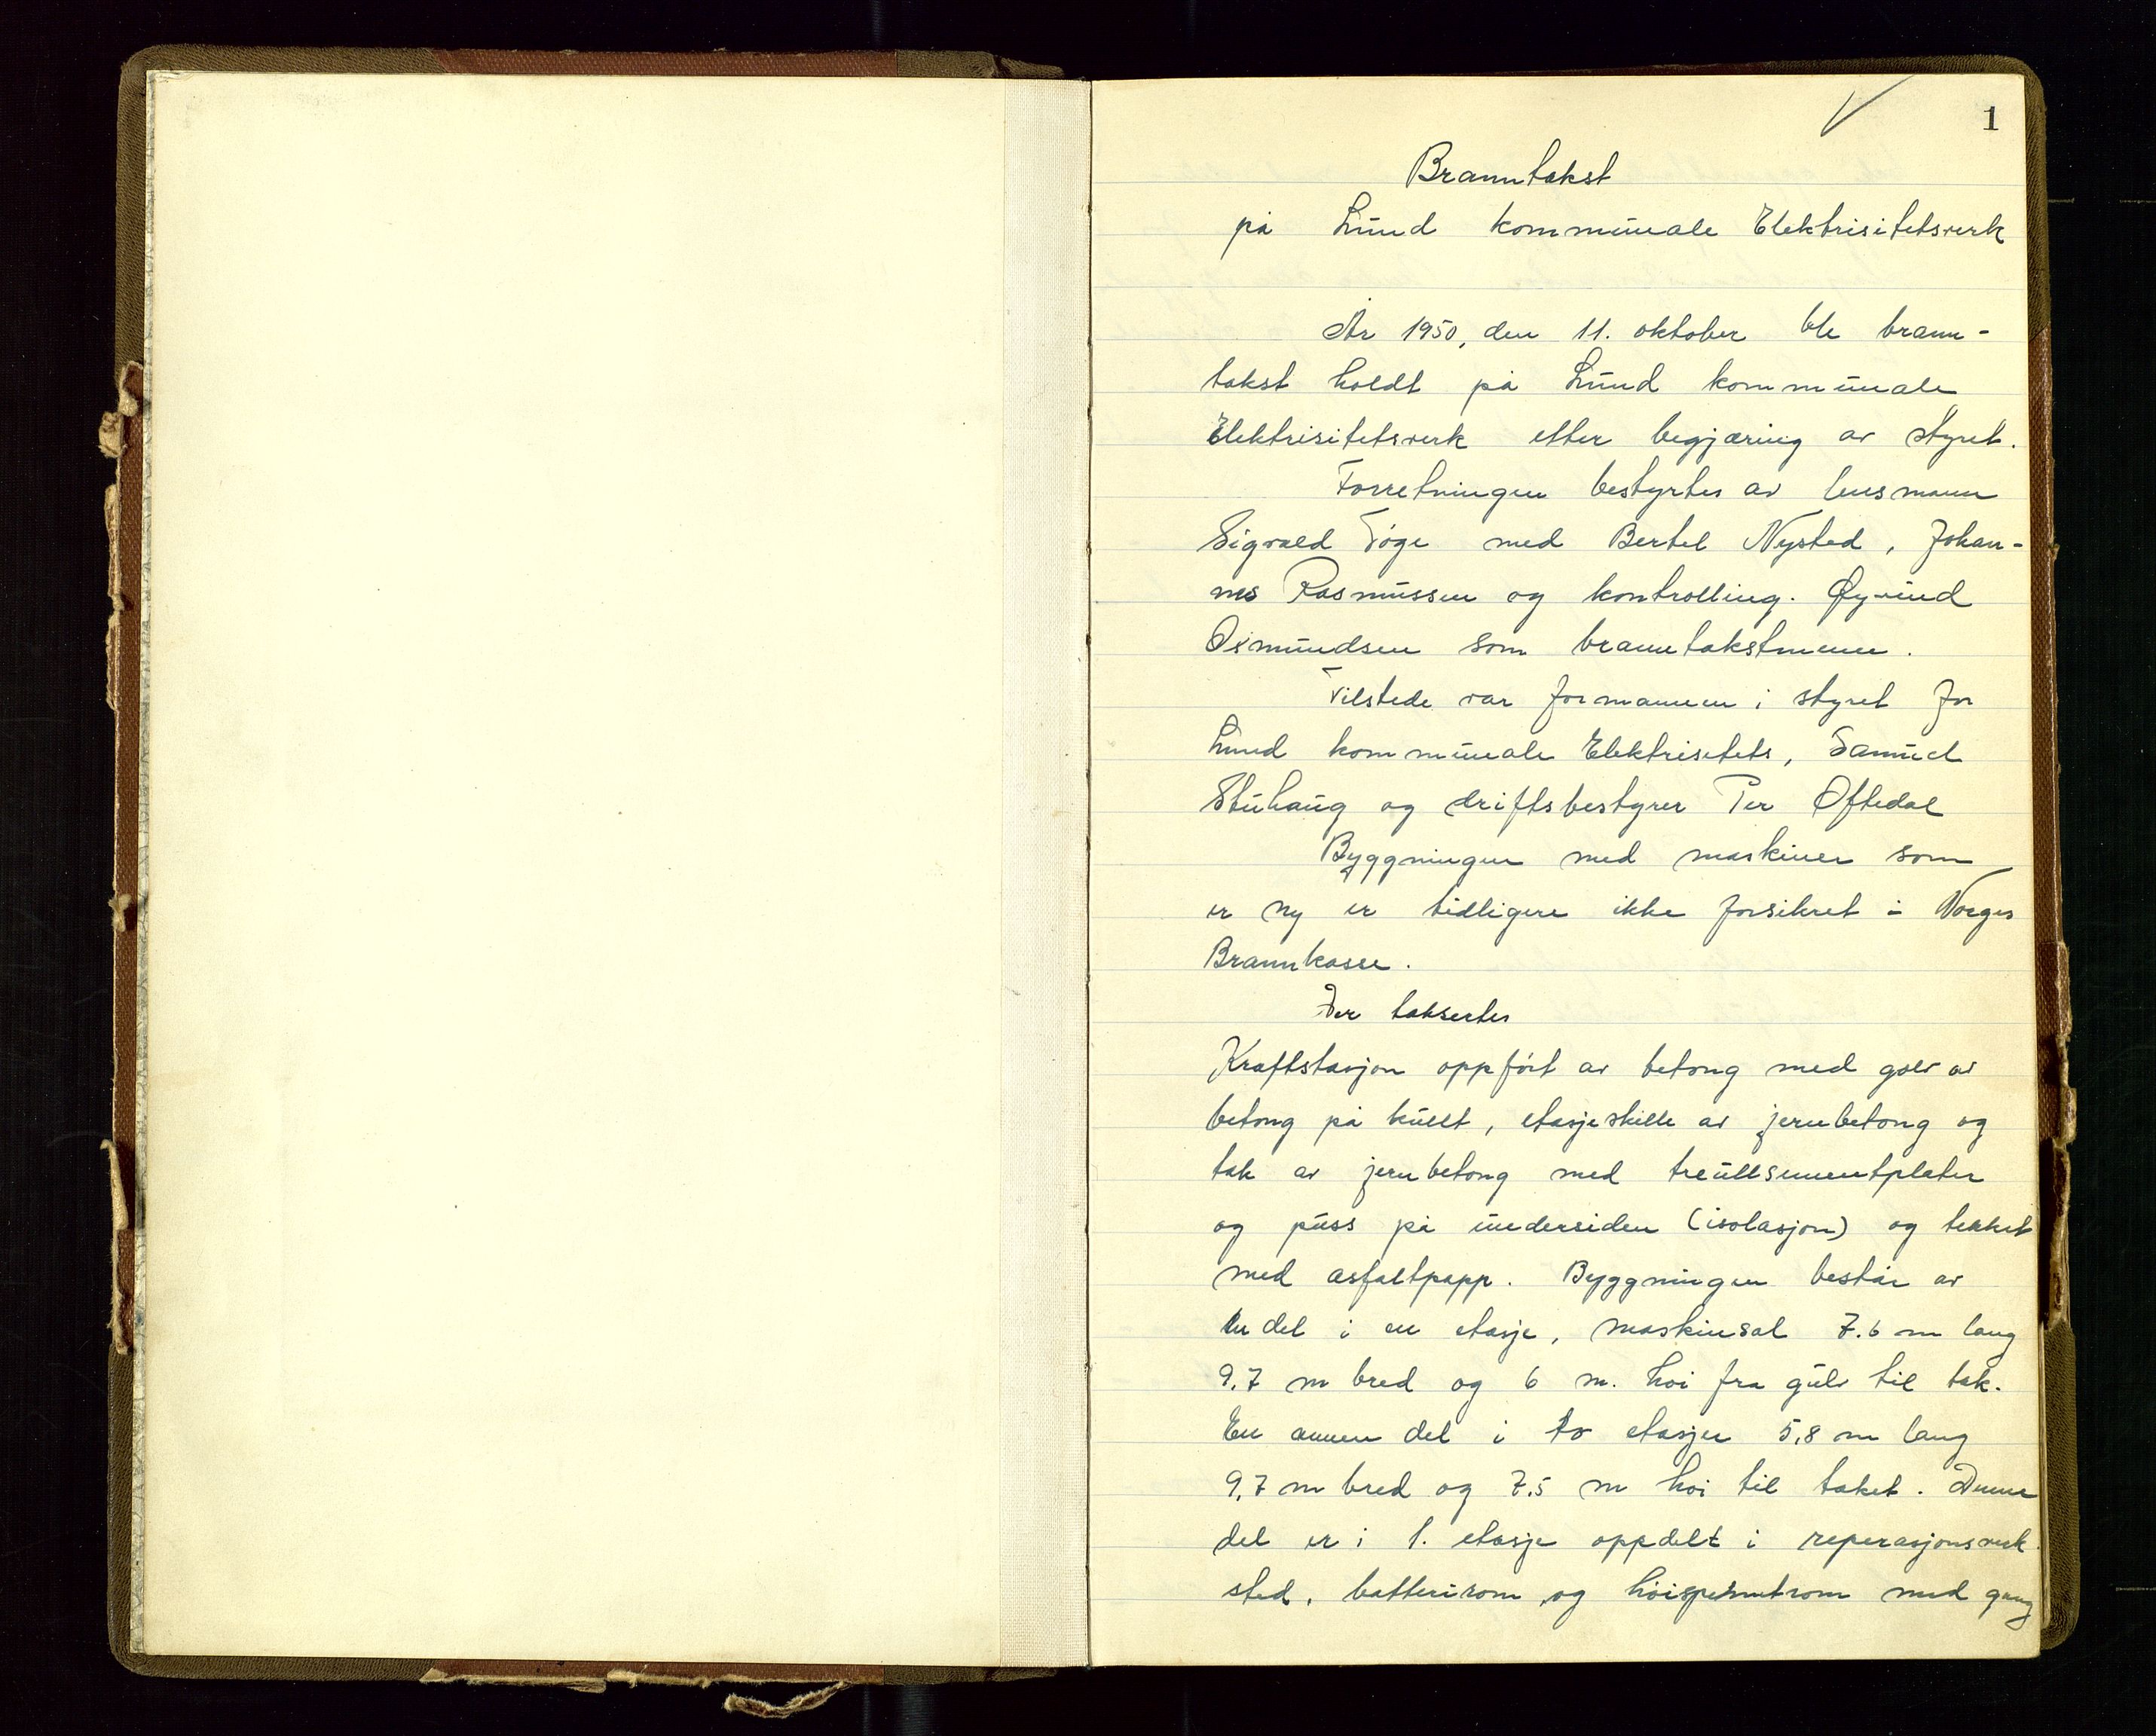 1
Branntakst
på Lund kommunale Elektrisitetsverk
År 1950, den 11. oktober ble brann-
takst holdt på Lund kommunale
Elektrisitetsverk etter begjæring av styret.
Forretningen bestyrtes av lensmann
Sigvald Tøge med Bertel Nysted, Johan-
nes Rasmussen og kontrolling. Øyvind
Osmundsen som branntakstmenn.
Tilstede var formannen i styret for
Lund kommunale Elektrisitets, Samuel
Stuhaug og driftsbestyrer Per Oftedal
Byggningen med maskiner som
er ny er tidligere ikke forsikret i Norges
Brannkasse.
Der taksertes
Kraftstasjon oppført av betong med golv av
betong på kult, etasjeskille av jernbetong og
tak av jernbetong med treullsementplater
og puss på undersiden (isolasjon) og tekket
med asfaltpapp. Byggningen består av
en del i en etasje, maskinsal 7.6 m lang
9.7 m bred og 6 m. høi fra gulv til tak.
En annen del i to etasjer 5,8 m lang
9,7 m bred og 7.5 m høi til taket. Denne
del er i 1. etasje oppdelt i reperasjonsverk
sted, batterirom og høispentrom med gang